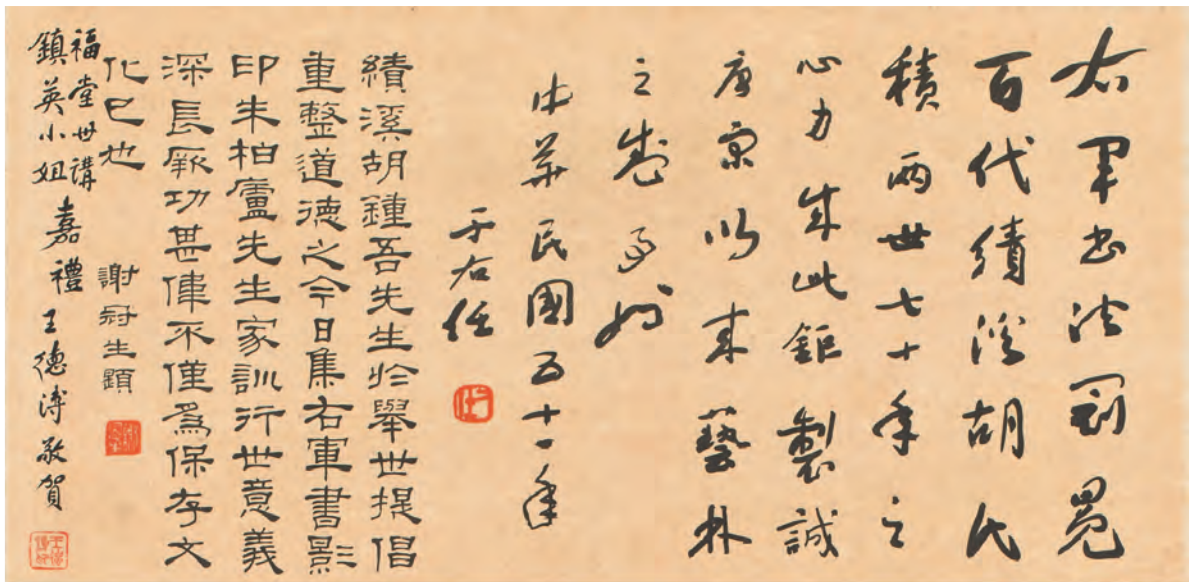 右軍書法冠冕
百代績溪胡氏
積兩世七十年之
心力成此鉅製誠
唐宋以來藝林
之盛事也
中華民國五十一年
于右任
績溪胡鍾吾先生於舉世提倡
重整道德之今日集右軍書影
印朱柏廬先生家訓行世意義
深長厥功甚偉不僅爲保存文
化已也
謝冠生題
福堂世講
鎮英小姐
嘉禮 王德溥敬賀